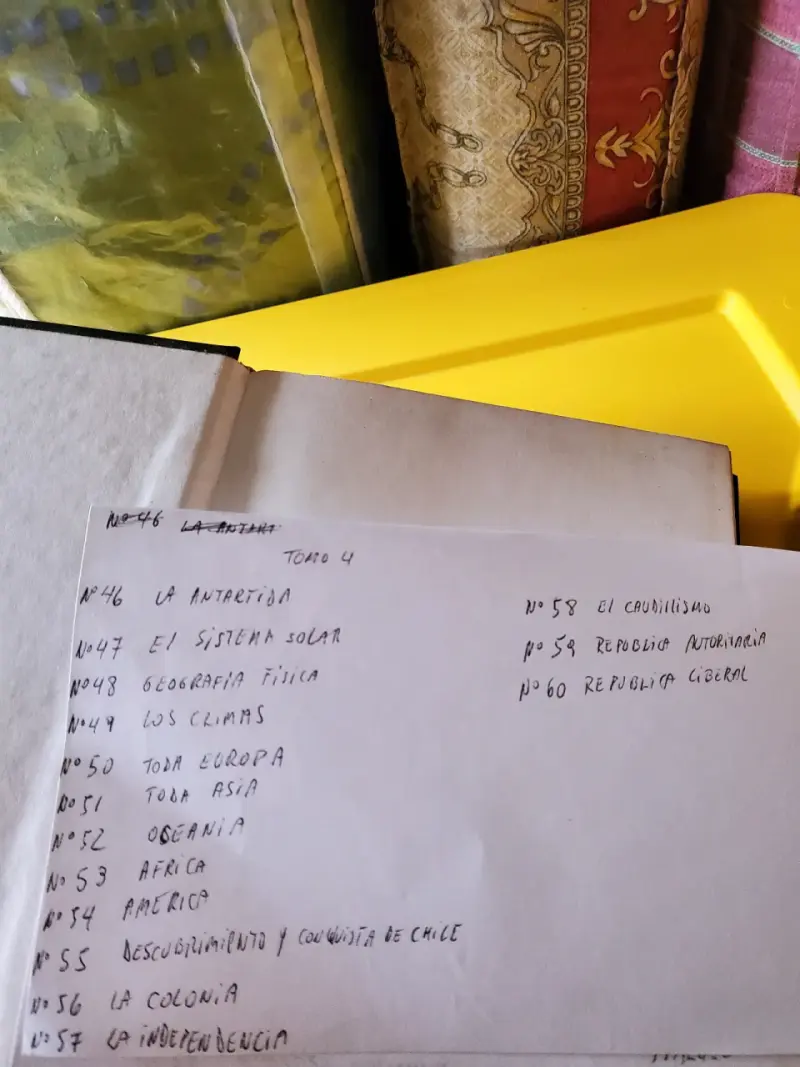 Nº 46 LA ANTART
TOMO 4
Nº 46 LA ANTARTIDA
Nº 47 El SISTEMA SOLAR
Nº 48 GEOGRAFIA FÍSICA
Nº 49 LOS CLIMAS
Nº 50 TODA EUROPA
Nº 51 TODA ASIA
Nº 52 OSEANIA
Nº 53 AFRICA
Nº 54 AMERICA
Nº 55 DESCUBRIMIENTO Y CONQUISTA DE CHILE
Nº 56 LA COLONIA
Nº 57 LA INDEPENDENCIA
Nº 58 El CAUDILLISMO
Nº 59 REPUBLICA AUTORITARIA
Nº 60 REPUBLICA LIBERAL